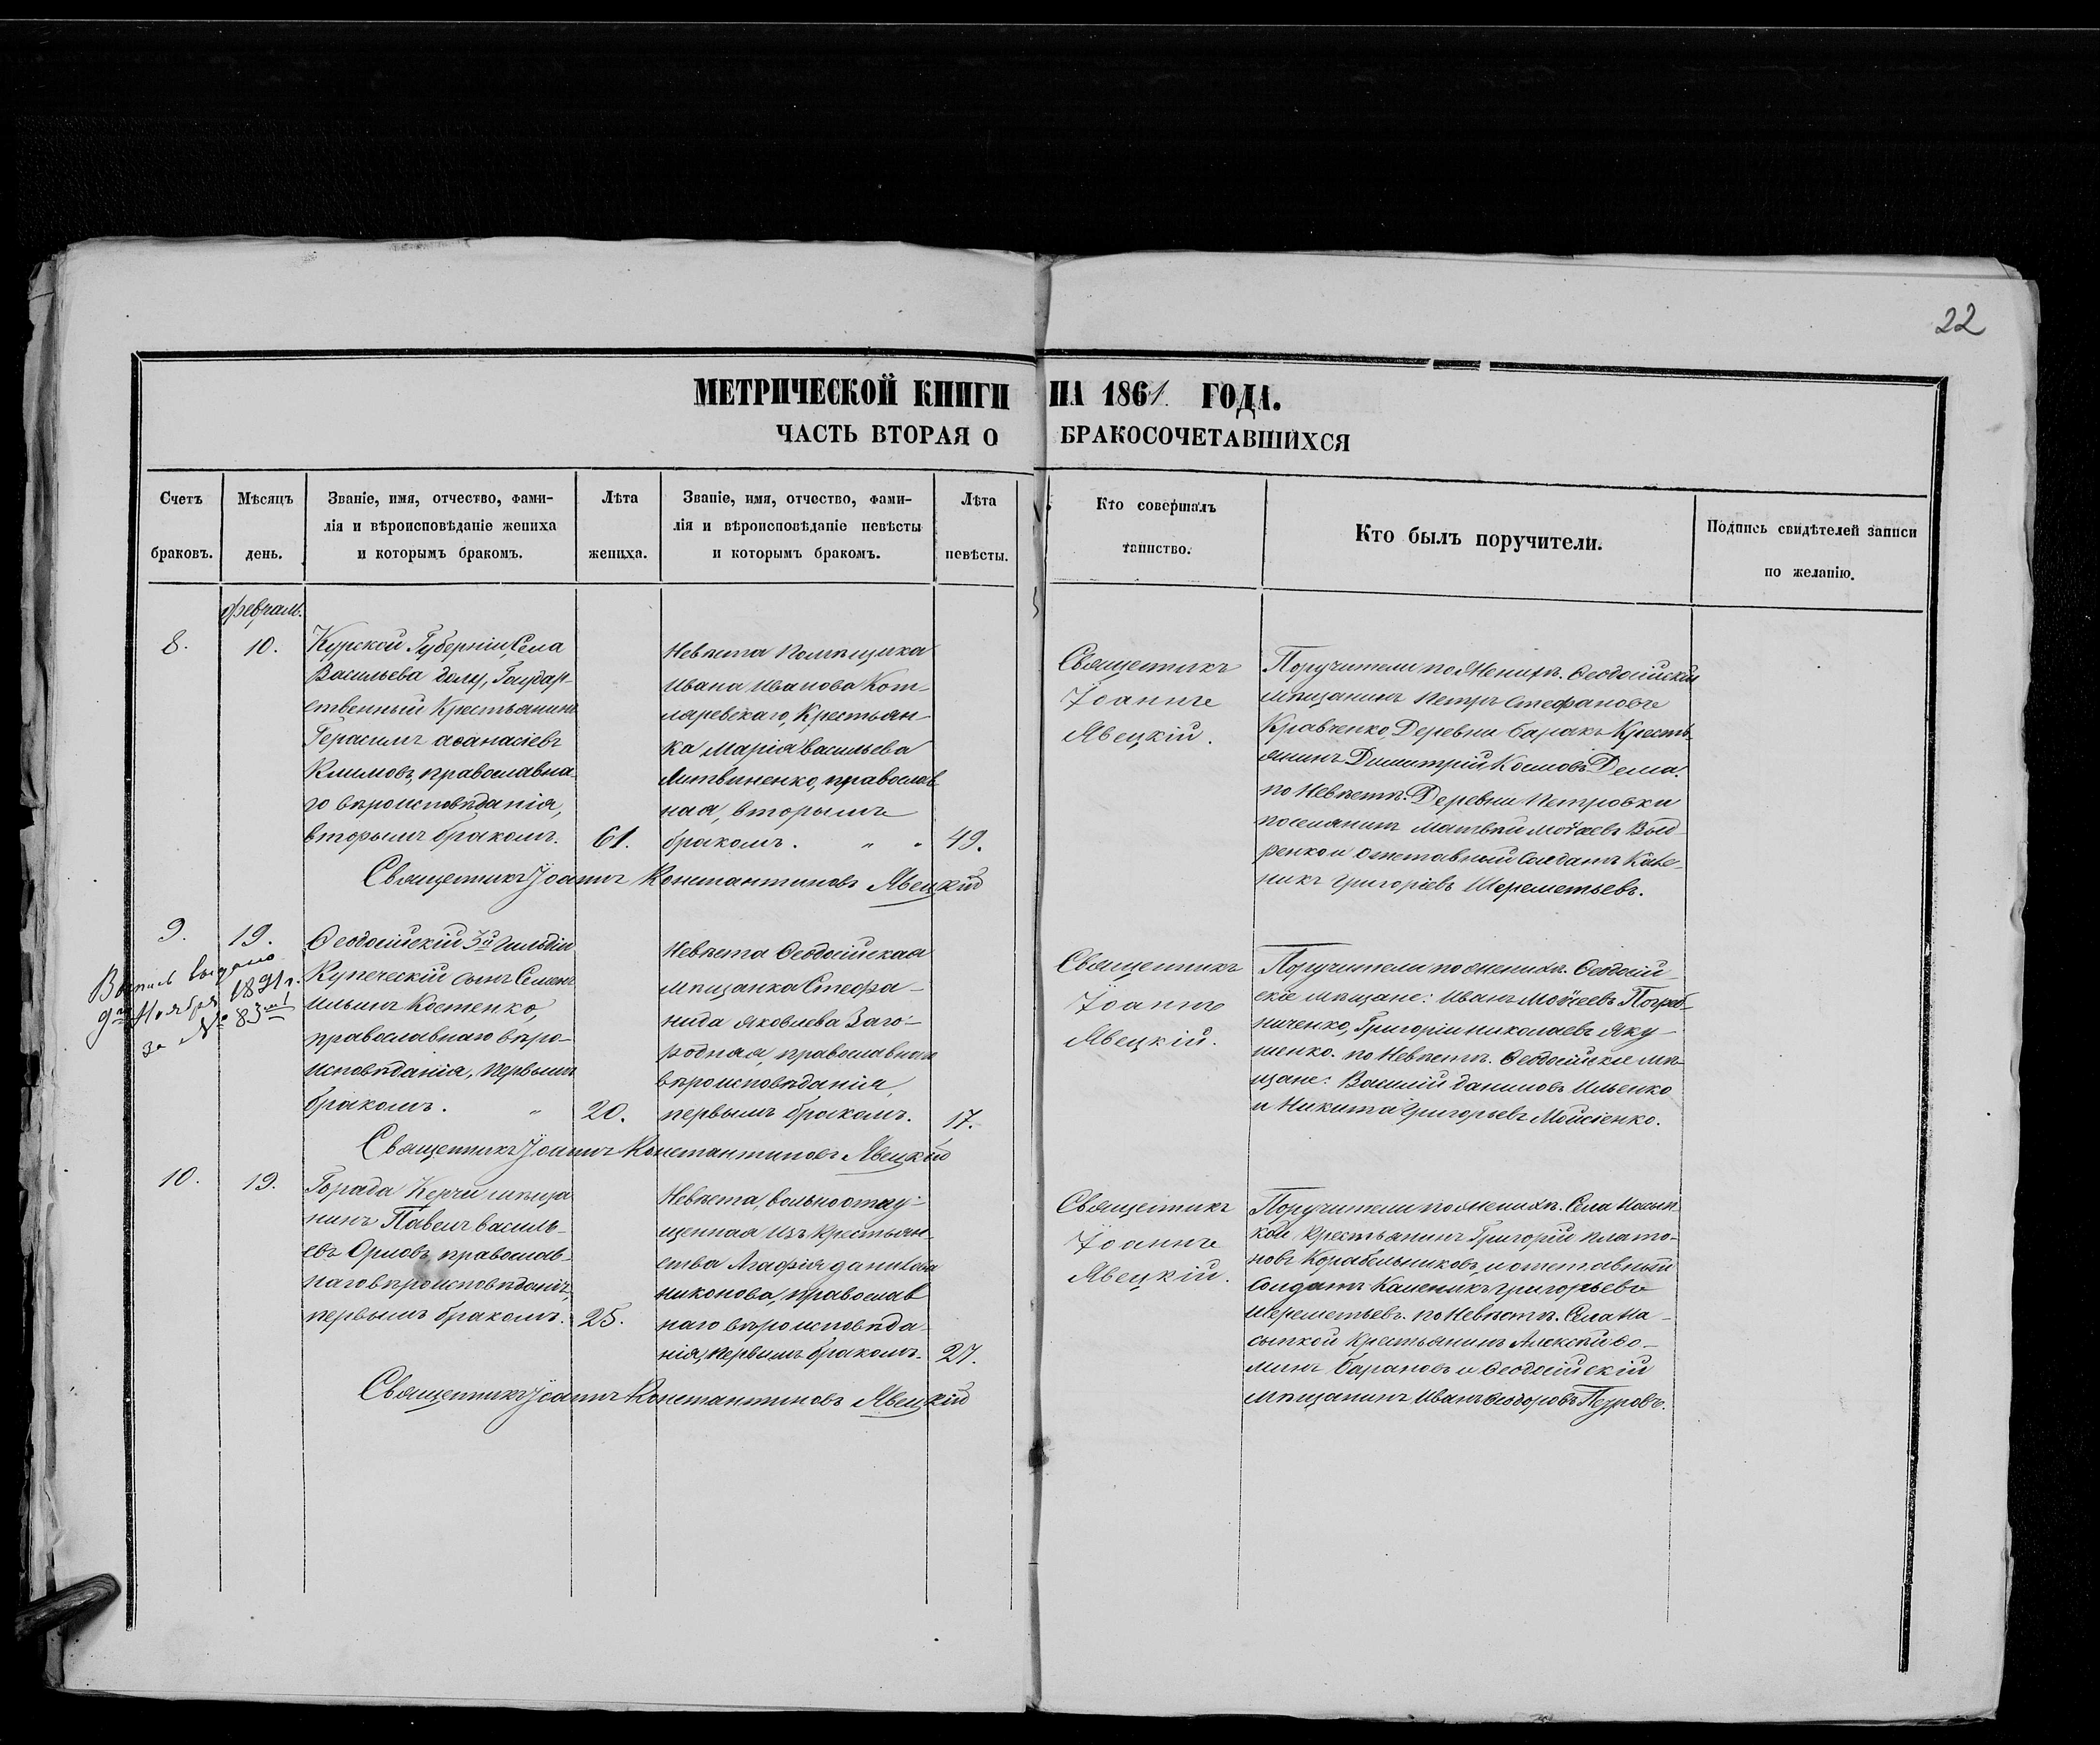 22
МЕТРИЧЕСКОЙ КНИГИ НА 1861 ГОДА.
ЧАСТЬ ВТОРАЯ О БРАКОСОЧЕТАВШИХСЯ
Счетъ
браковъ.
Мѣсяцъ
день.
Званіе, имя, отчество, фами-
лія и вѣроисповѣданіе жениха
и которымъ бракомъ.
Лѣта
жениха.
Званіе, имя, отчество, фами-
лія и вѣроисповѣданіе невѣсты
и которымъ бракомъ.
Лѣта
невѣсты.
Кто совершалъ
таинство.
Кто былъ поручители.
Подпись свидѣтелей записи
по желанію.
февраль.
8.
10.
Курской Губерніи, Села
Васильева долу, Государ-
ственный Крестьянинъ
Герасимъ Аѳанасіевъ
Климовъ, православна-
го вѣроисповѣданія,
вторымъ бракомъ.
61.
Невѣста Помѣщика
Ивана Иванова Кот-
ляревскаго, Крестьян-
ка Марія Васильева
Литвиненко, православ
ная, вторымъ
бракомъ. " "
49.
Священникъ
Іоаннъ
Явецкій.
Поручители по Женихѣ. Ѳеодосійскій
мѣщанинъ Петръ Стефановъ
Кравченко, Деревни Баракъ Кресть-
янинъ Димитрій Космовъ Дема.
по Невѣстѣ: Деревни Петровки
поселянинъ Матвѣй Моѵсеевъ
ренко и отставный Солдатъ Кале-
никъ Григоріевъ Шереметьевъ.
Священникъ Іоаннъ Константиновъ Явецкій
9.
19.
Выпись выдана
9го Ноября 1891 г.
за № 83мъ
Ѳеодосійскій 3й Гильдіи
Купеческій сынъ Семенъ
Ильинъ Костенко,
православнаго вѣро-
исповѣданія, первымъ
бракомъ. "
20.
Невѣста Ѳеодосійская
мѣщанка Стефа-
нида Яковлева Заго-
родняя, православнаго
вѣроисповѣданія,
первымъ бракомъ.
17.
Священникъ
Іоаннъ
Явецкій.
Поручители по женихѣ. Ѳеодосій-
скіе мѣщане: Иванъ Моѵсеевъ Погреб-
ниченко, Григорій Николаевъ Яку-
шенко. по Невѣстѣ. Ѳеодосійскіе мѣ-
щане: Василій Даниловъ Ильенко
и Никита Григорьевъ Мойсіенко.
Священникъ Іоаннъ Константиновъ Явецкій
10.
19.
Города Керчи мѣща
нинъ Павелъ Василь-
евъ Орловъ, православ-
наго вѣроисповѣданія,
первымъ бракомъ.
25.
Невѣста, вольноотпу-
щенная изъ крестьян-
ства Агафія Данилова
Никонова, православ
наго вѣроисповѣда-
нія, первымъ бракомъ.
27.
Священникъ
Іоаннъ
Явецкій.
Поручители по женихѣ. Села Насып-
кой Крестьянинъ Григорій Плато-
новъ Корабельниковъ, и отставный
Солдатъ Каленикъ Григорьевъ
Шереметьевъ. по Невѣстѣ. Села На-
сыпкой Крестьянинъ Алексѣй Ѳо-
минъ Барановъ и Ѳеодосійскій
мѣщанинъ, Иванъ Ѳеодоровъ Петровъ.
Священникъ Іоаннъ Константиновъ Явецкій